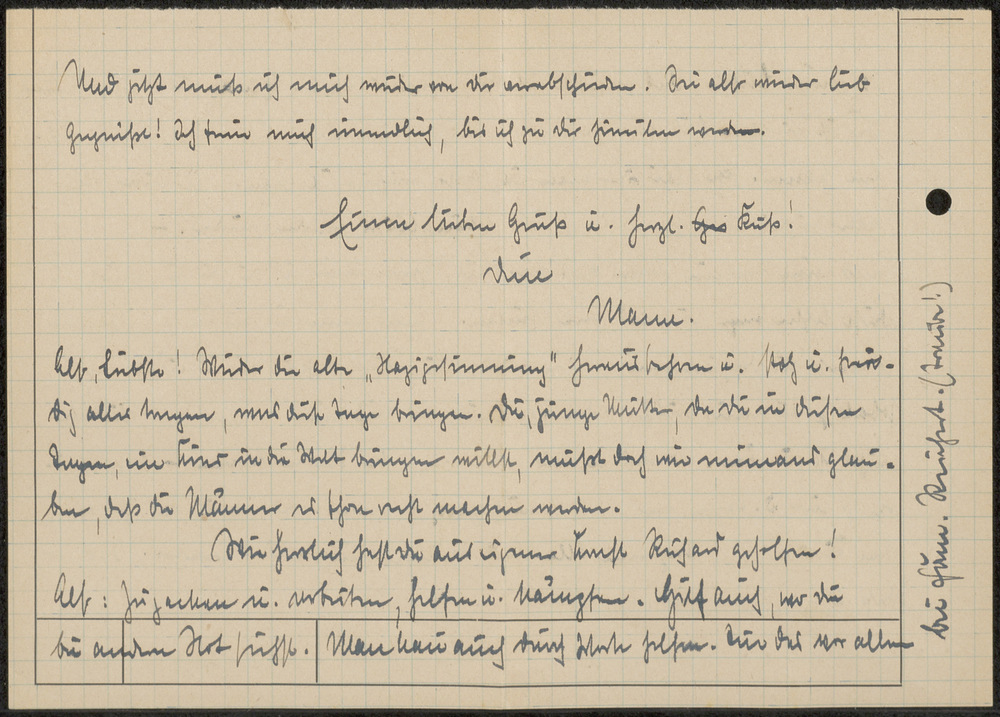 Und jetzt muß ich mich wieder von dir verabschieden. Sei also wieder lieb
gegrüßt! Ich freue mich unendlich, bis ich zu dir
Einen lieben Gruß u. herzl. Kuß!
Dein
Mann.
Also, Liebste! Wieder die alte „Nazigesinnung" herauskehren u. stolz u. freu-
dig alles tragen, was diese Tage bringen. Du, junge Mutter, da du in diesen
Tagen, ein Kind in die Welt bringen willst, mußt doch wie niemand glau-
ben, daß die Männer es schon recht machen werden.
Wie herrlich hast du aus eigener Kraft Richard geholfen!
Also: Zupacken u. arbeiten, helfen u. kämpfen. Hilf auch, wo du
bei andern Not siehst. Man kann auch durch Worte helfen. Tue das vor allem
bei Fam. Reichert. (Traudl!)